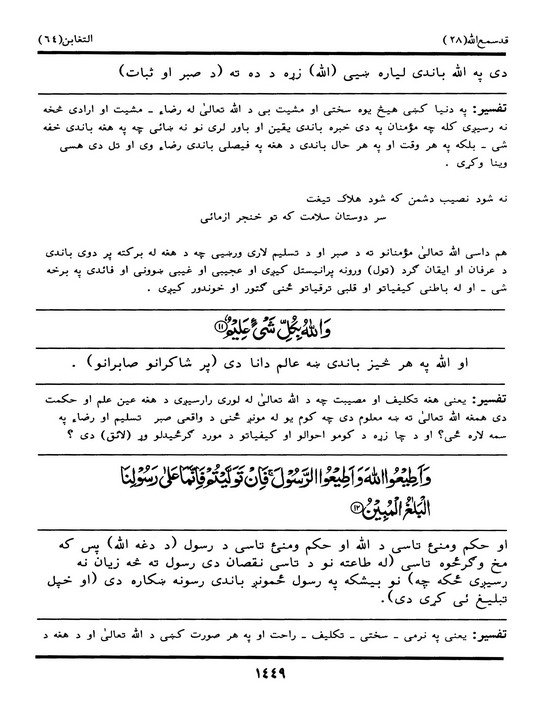 قدسمع الله (۲۸)
التغابن (٦٤)
دی په الله باندی لياره ښيی (الله) زړه د ده ته (د صبر او ثبات)
تفسير: په دنيا کښی هيڅ يوه سختی او مشيت بی د الله تعالیٰ له رضاء ـ مشيت او ارادی څخه
نه رسيږی کله چه مؤمنان په دی خبره باندی يقين او باور لری نو نه ښائی چه په هغه باندی خفه
شی ـ بلکه په هر وقت او په هر حال باندی د هغه په فيصلی باندی رضاء وی او تل دی هسی
وينا وکړی .
نه شود نصيب دشمن که شود هلاک تيغت
سر دوستان سلامت که تو خنجر ازمائی
هم داسی الله تعالیٰ مؤمنانو ته د صبر او د تسليم لاری ورښيی چه د هغه له برکته پر دوی باندی
د عرفان او ايقان ګرد (ټول) ورونه پرانيستل کيږی او عجيبی او غيبی ښوونی او فائدی په برخه
شی ـ او له باطنی کيفياتو او قلبی ترقياتو څنی ګټور او خوندور کيږی .
وَاللهُ بِكُلِّ شَيْءٍ عَلِيمٌ ﴿۱۱﴾
او الله په هر څيز باندی ښه عالم دانا دی (پر شاکرانو صابرانو) .
تفسير: يعنی هغه تکليف او مصيبت چه د الله تعالیٰ له لوری رارسيږی د هغه عين علم او حکمت
دی همغه الله تعالیٰ ته ښه معلوم دی چه کوم يو له مونږ څنی د واقعی صبر تسليم او رضاء په
سمه لاره ځی؟ او د چا زړه د کومو احوالو او کيفياتو د مورد ګرځيدلو وړ (لائق) دی ؟
وَأَطِيعُوا اللهَ وَأَطِيعُوا الرَّسُولَ فَإِن تَوَلَّيْتُمْ فَإِنَّمَا عَلَىٰ رَسُولِنَا
الْبَلٰغُ الْمُبِينُ ﴿۱۲﴾
او حکم ومنئ تاسی د الله او حکم ومنئ تاسی د رسول (د دغه الله) پس که
مخ وګرځوه تاسی (له طاعته نو د تاسی نقصان دی رسول ته څه زيان نه
رسيږی ځکه چه) نو بيشکه په رسول ځمونږ باندی رسونه ښکاره دی (او خپل
تبليغ ئی کړی دی).
تفسير: يعنی په نرمی ـ سختی ـ تکليف ـ راحت او په هر صورت کښی د الله تعالیٰ او د هغه د
١٤٤٩